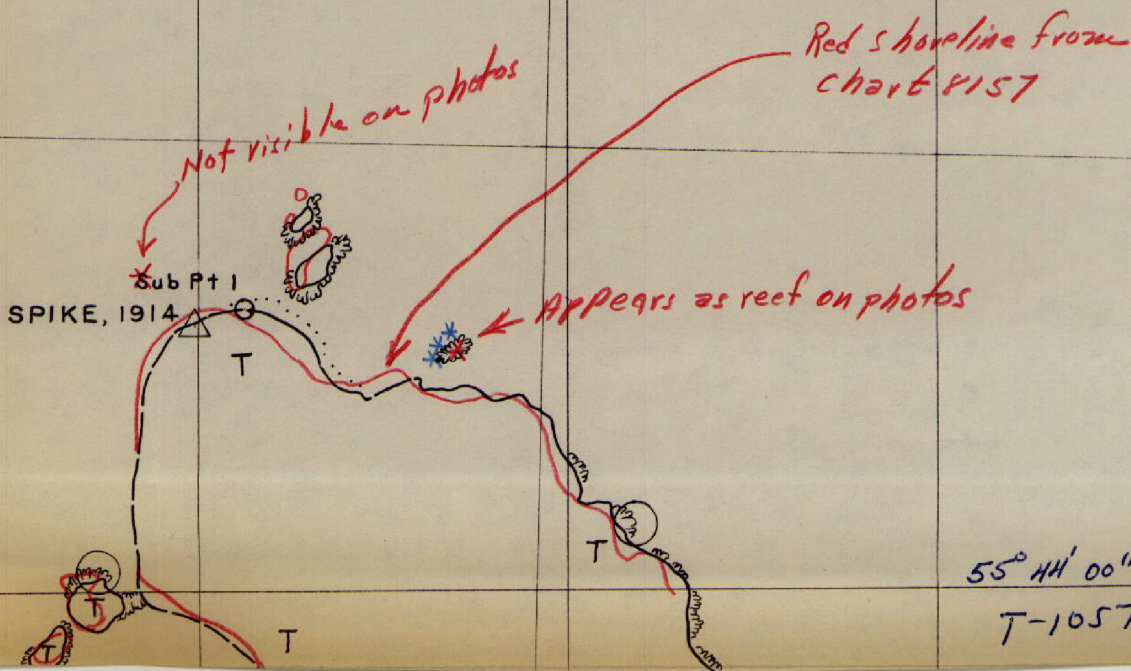 Red shoreline from
chart 8157
Not visible on photos
Sub Pt 1
SPIKE, 1914
Appears as reef on photos
T
T
T
T
T
55° 44' 00"
T-1057